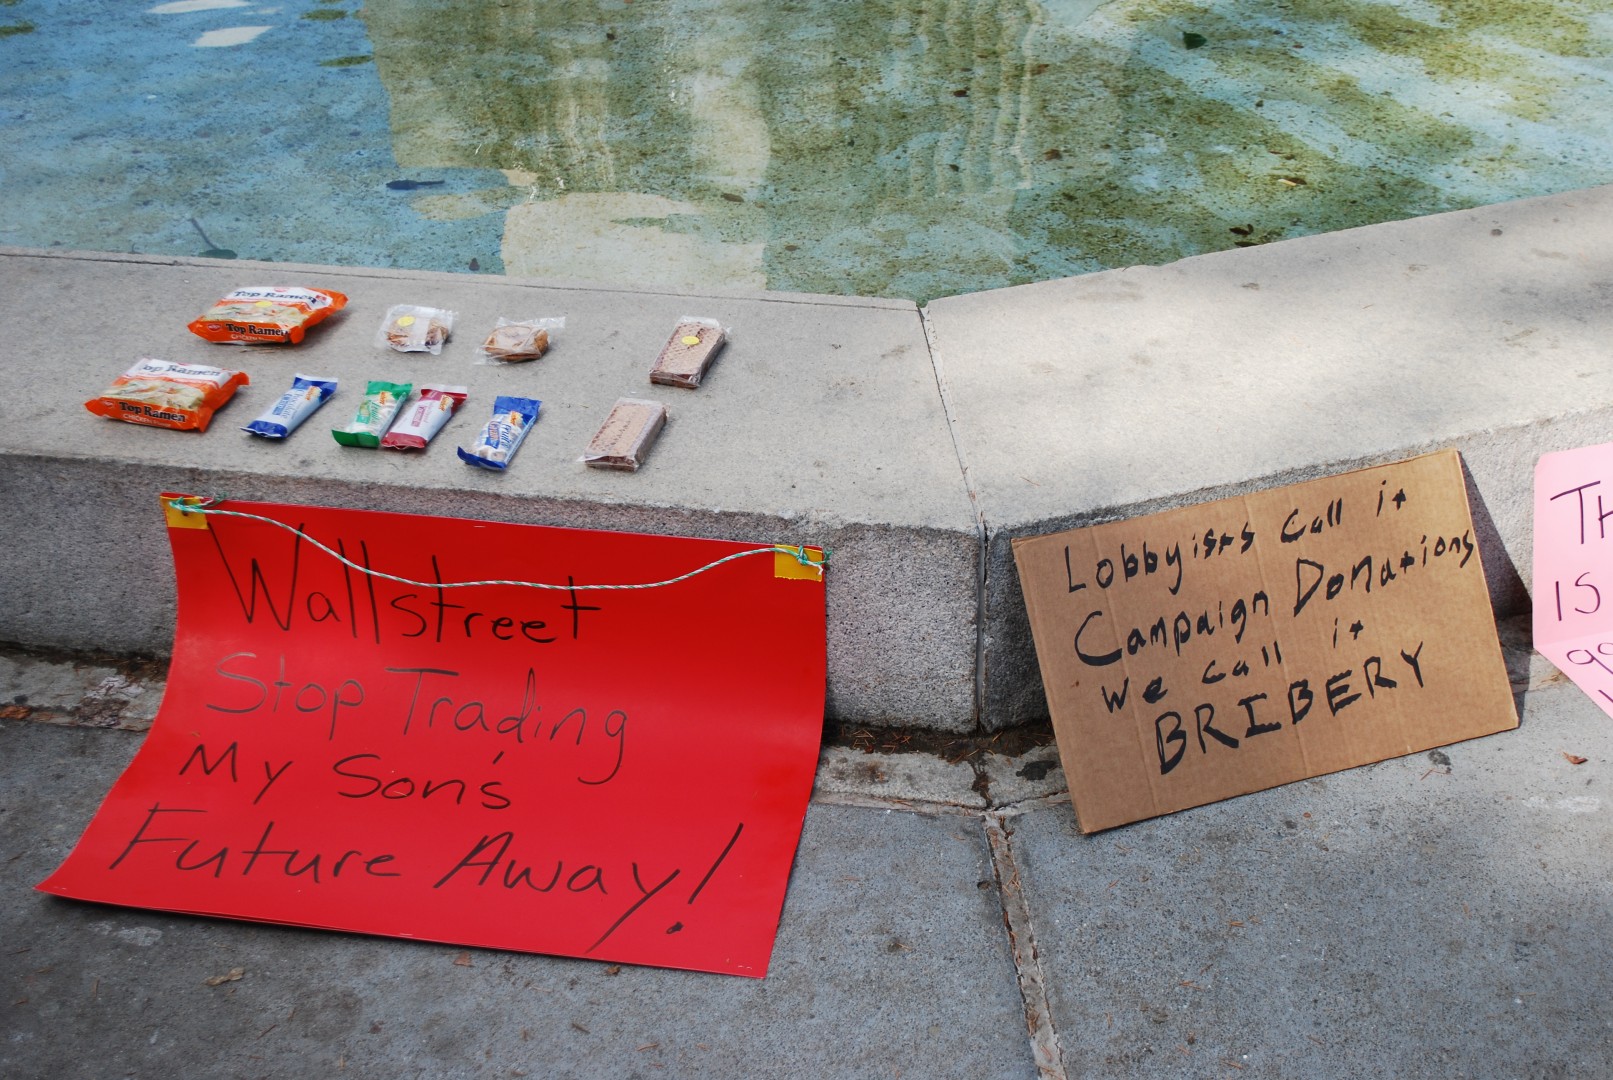 Top Ramen
Top Ramen
Top Ramen
Top Ramen
Wallstreet
Stop Trading
My Son's
Future Away!
Lobbyists Call it
Campaign Donations
we call it
BRIBERY
IS